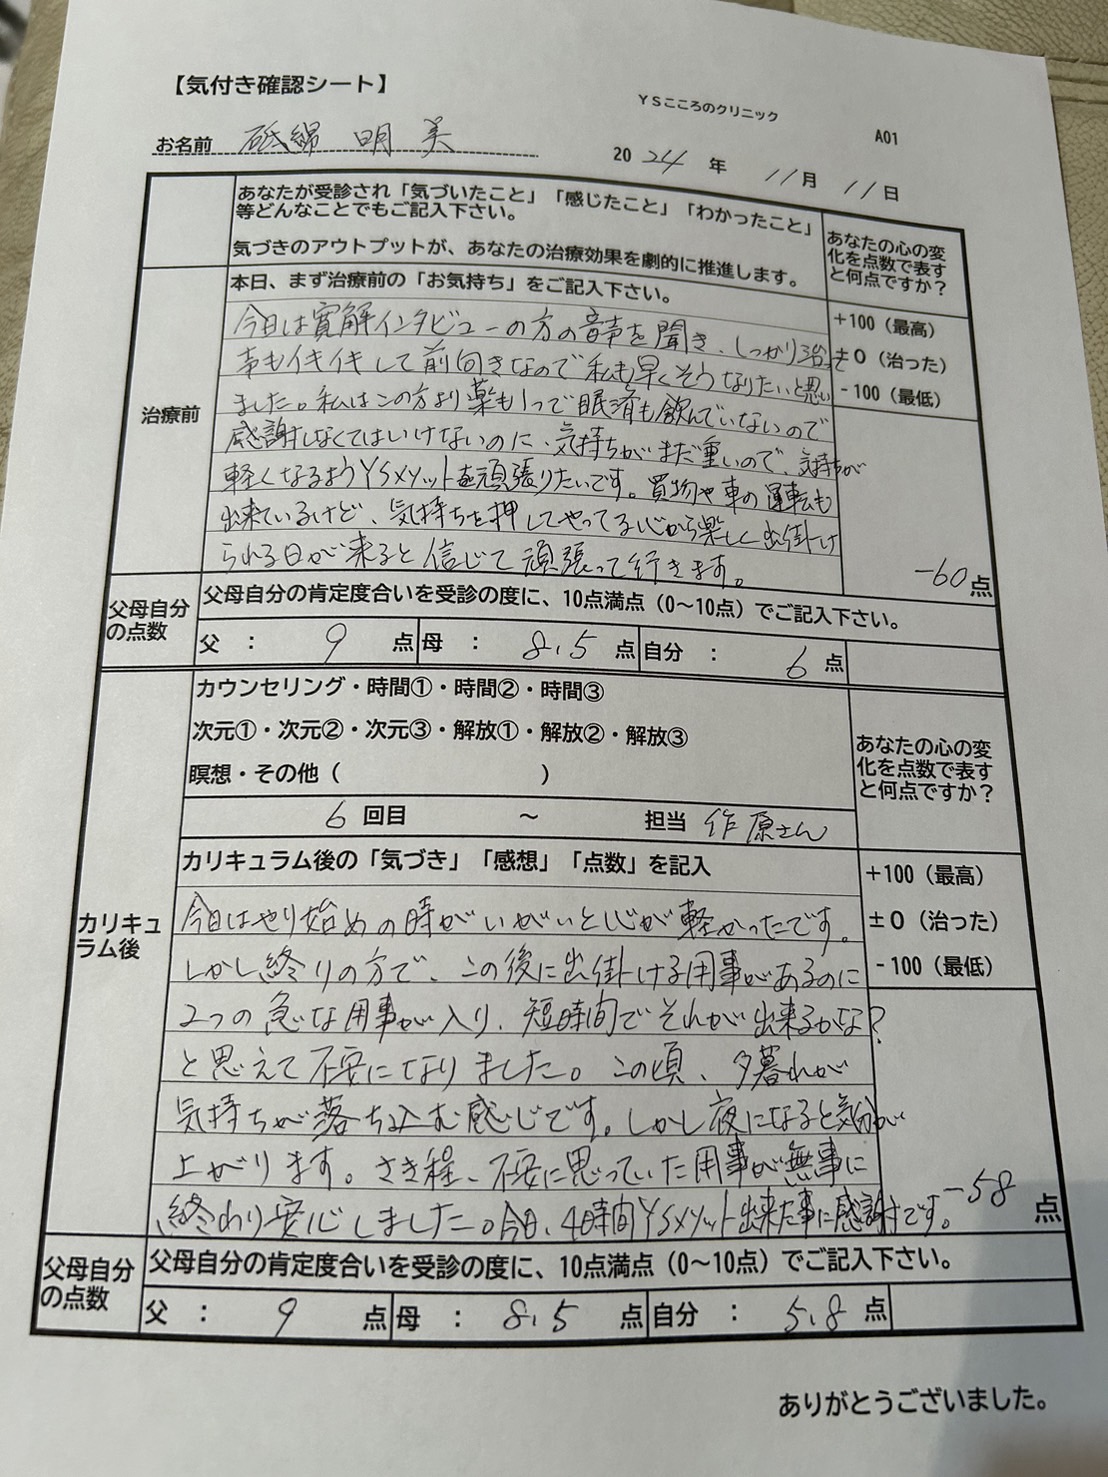 【気付き確認シート】
YSこころのクリニック
A01
お名前 砥綿 明美
2024年 11月 11日
あなたが受診され「気づいたこと」「感じたこと」「わかったこと」
等どんなことでもご記入下さい。
気づきのアウトプットが、あなたの治療効果を劇的に推進します。
あなたの心の変
化を点数で表す
と何点ですか？
治療前
本日、まず治療前の「お気持ち」をご記入下さい。
+100（最高）
±0（治った）
-100（最低）
今日は寛解インタビューの方の音声を聞き、しっかり治って
事もイキイキして前向きなので私も早くそうなりたいと思い
ました。私はこの方より薬も1つで眠剤も飲んでいないので
感謝しなくてはいけないのに、気持ちがまだ重いので、気持ちが
軽くなるようYSメソットを頑張りたいです。買物や車の運転も
出来ているけど、気持ちを押してやってる心から楽しく出掛け
られる日が来ると信じて頑張って行きます。
-60点
父母自分
の点数
父母自分の肯定度合いを受診の度に、10点満点（0〜10点）でご記入下さい。
父 ： 9 点 母 ： 8.5 点 自分 ： 6 点
カウンセリング・時間①・時間②・時間③
次元①・次元②・次元③・解放①・解放②・解放③
瞑想・その他（ ）
あなたの心の変
化を点数で表す
と何点ですか？
6 回目 〜 担当 作原さん
カリキュ
ラム後
カリキュラム後の「気づき」「感想」「点数」を記入
+100（最高）
±0（治った）
-100（最低）
今日はやり始めの時がいがいと心が軽かったです。
しかし終りの方で、この後に出掛ける用事があるのに
2つの急な用事が入り、短時間でそれが出来るかな?
と思えて不安になりました。この頃、夕暮れが
気持ちが落ち込む感じです。しかし夜になると気分が
上がります。さき程、不安に思っていた用事が無事に
終わり安心しました。今日、4時間YSメソット出来た事に感謝です。
-58 点
父母自分
の点数
父母自分の肯定度合いを受診の度に、10点満点（0〜10点）でご記入下さい。
父 ： 9 点 母 ： 8.5 点 自分 ： 5.8 点
ありがとうございました。